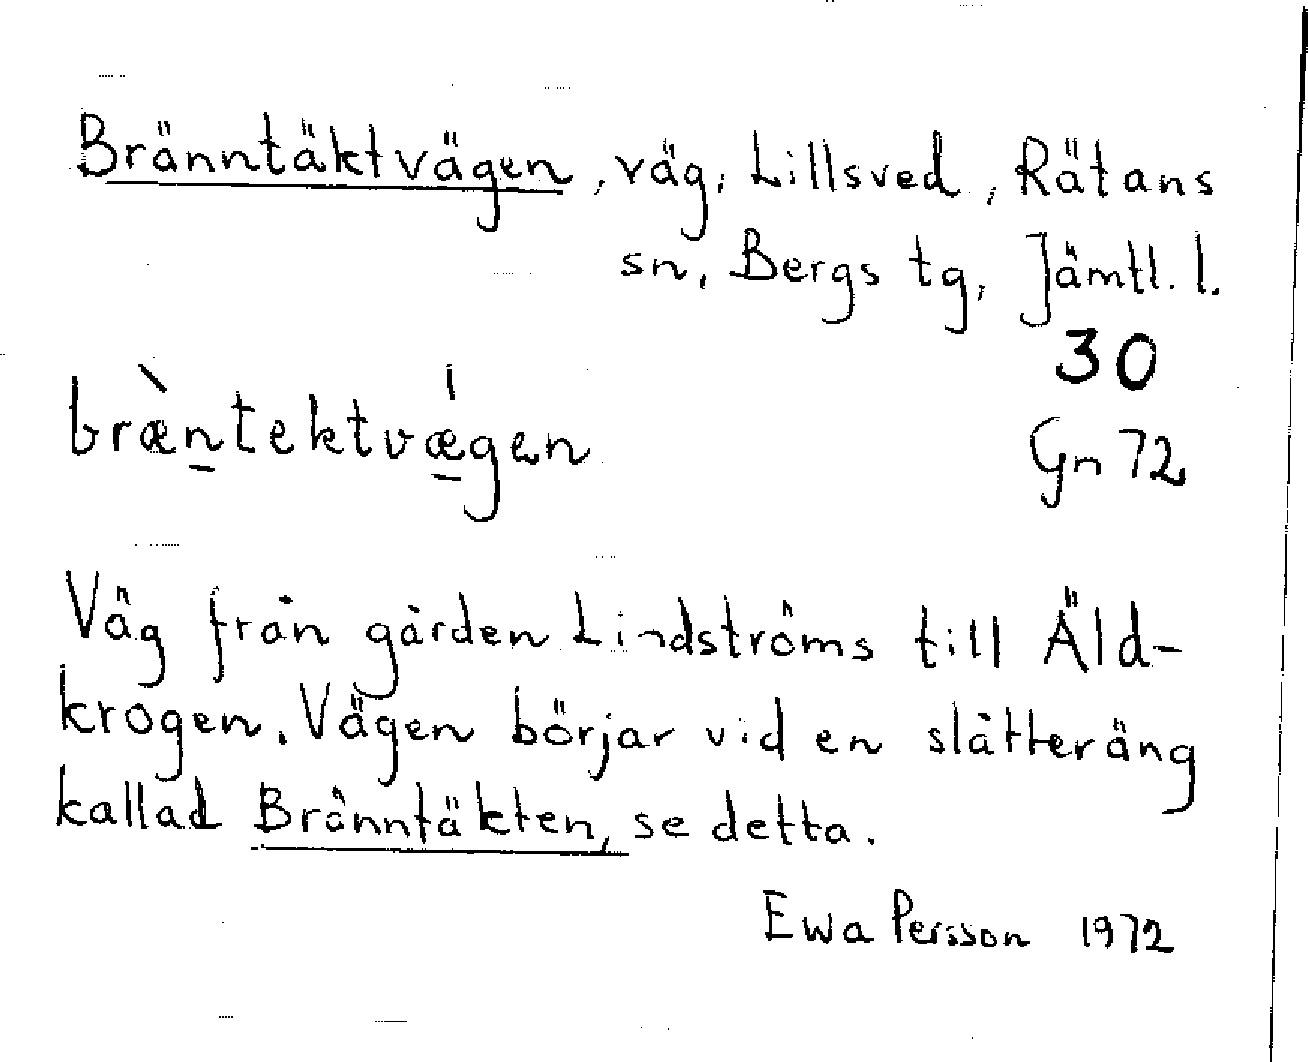 Bränntäktvägen, väg, Lillsved, Rätans
sn, Bergs tg, Jämtl. l.
30
bræ̀n̠tektvǽ̠gen
Gn 72
Väg från gården Lindströms till Äld-
krogen. Vägen börjar vid en slåtteräng
kallad Bränntäkten, se detta.
Ewa Persson 1972